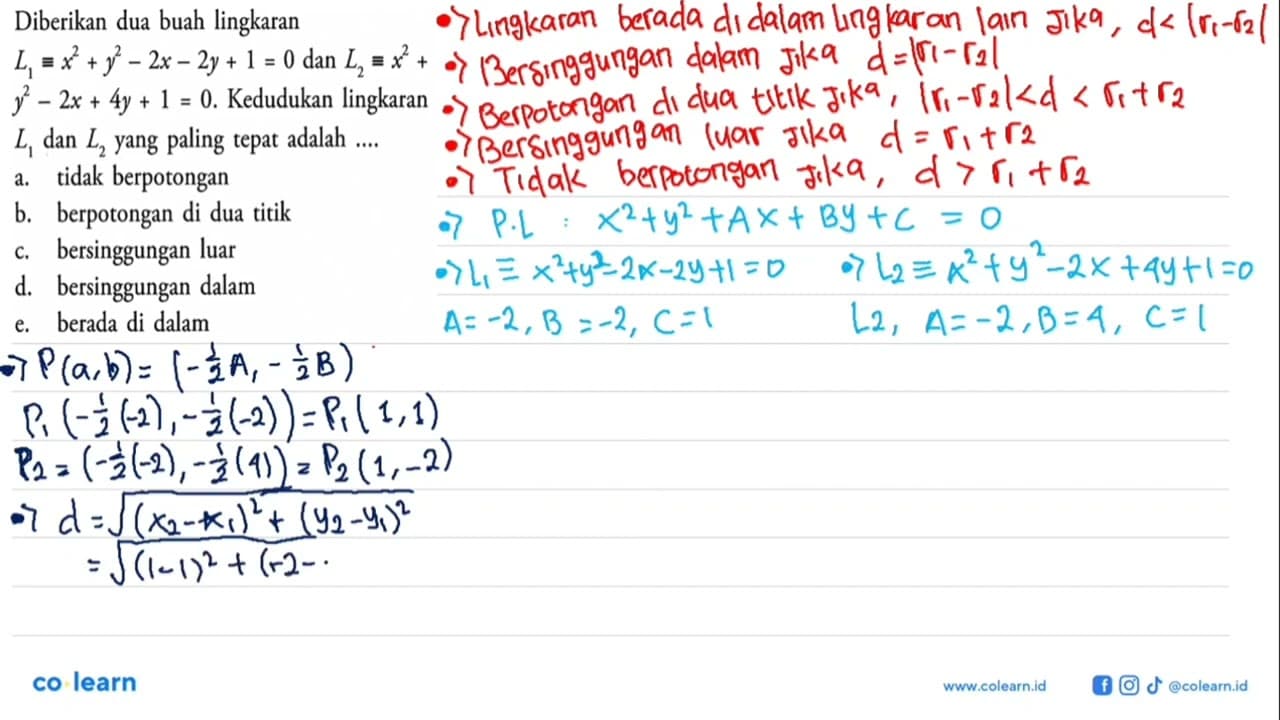 Diberikan dua buah lingkaran
L₁ ≡ x² + y² – 2x – 2y + 1 = 0 dan L₂ ≡ x² +
y² – 2x + 4y + 1 = 0. Kedudukan lingkaran
L₁ dan L₂ yang paling tepat adalah ....
a. tidak berpotongan
b. berpotongan di dua titik
c. bersinggungan luar
d. bersinggungan dalam
e. berada di dalam
•→ Lingkaran berada di dalam lingkaran lain Jika, d < |r₁-r₂|
•→ Bersinggungan dalam Jika d = |r₁-r₂|
•→ Berpotongan di dua titik Jika, |r₁-r₂| < d < r₁+r₂
•→ Bersinggungan luar Jika d = r₁+r₂
•→ Tidak berpotongan Jika, d > r₁+r₂
•→ P.L : x²+y²+Ax+By+C = 0
•→ L₁ ≡ x²+y²-2x-2y+1=0 •→ L₂ ≡ x²+y²-2x+4y+1=0
A=-2, B=-2, C=1 L2, A=-2, B=4, C=1
•→ P(a,b) = (-½A, -½B)
P₁(-½(-2), -½(-2)) = P₁(1,1)
P₂ = (-½(-2), -½(4)) = P₂(1,-2)
•→ d = √(x₂-x₁)² + (y₂-y₁)²
= √(1-1)² + (-2-
co learn
www.colearn.id @colearn.id